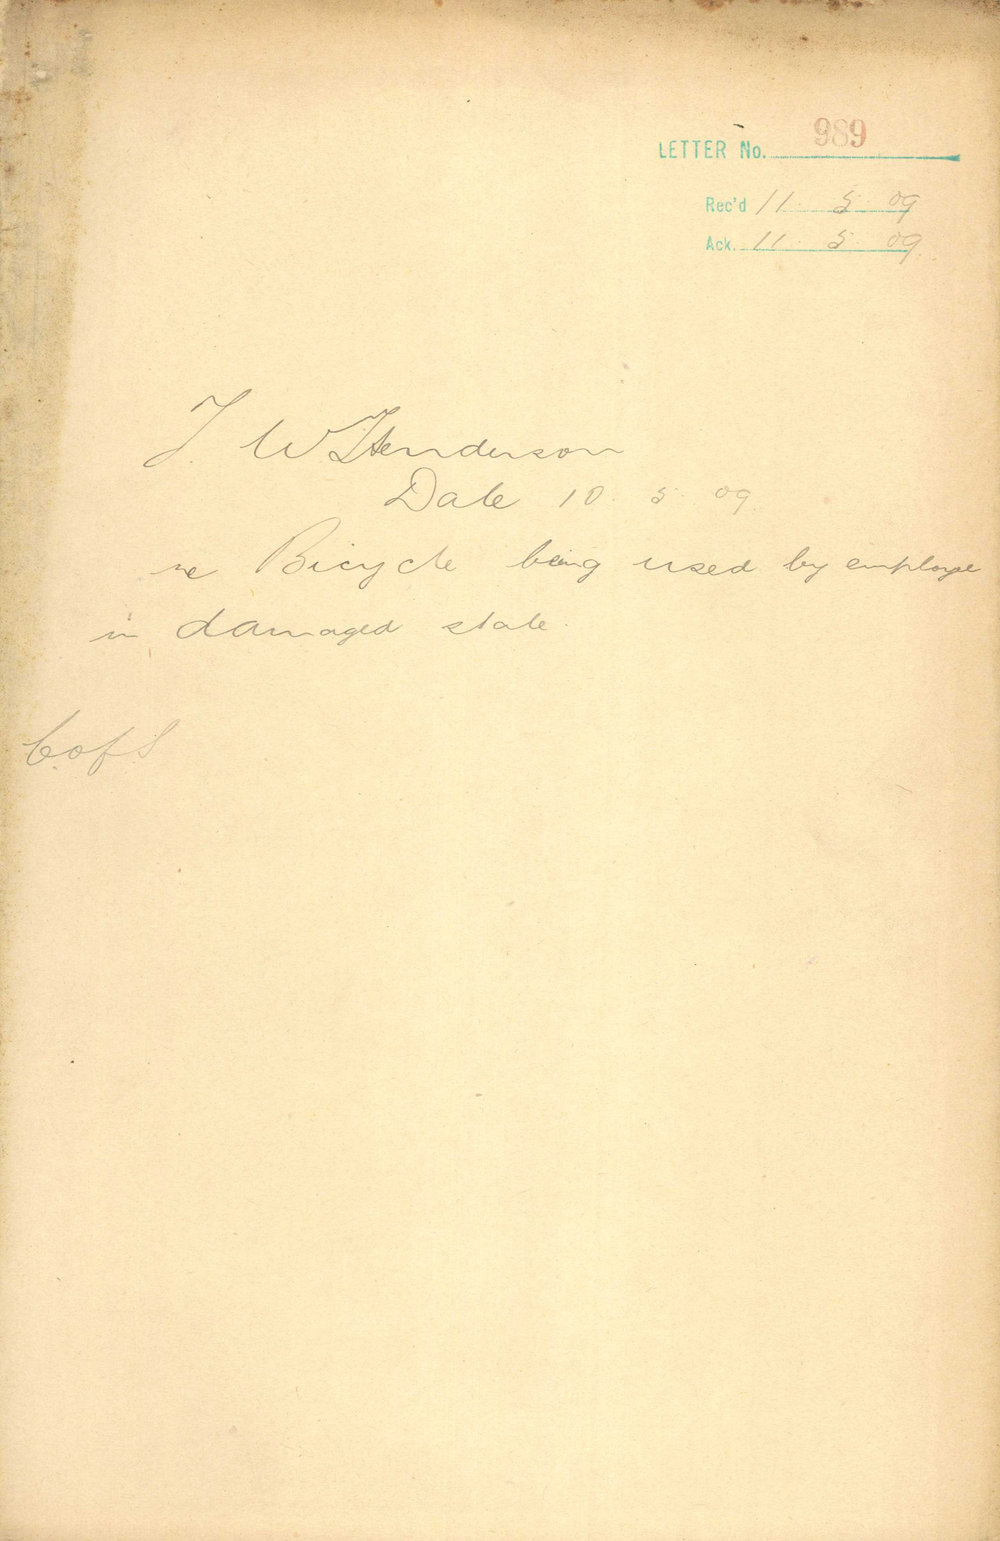 LETTER No. 989
Rec'd 11. 5. 09
Ack. 11. 5. 09.
J. W Henderson
Date 10. 5. 09.
re Bicycle being used by employe
in damaged state.
C. of S